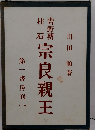 川田 順著
吉野朝柱石
宗良親王
第一書房刊